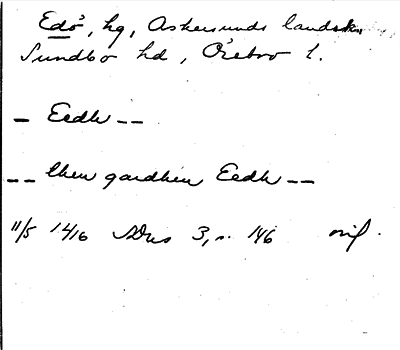 Edö, hg, Askersunds landsk.
Sundbo hd, Örebro l.
— Eedh --
-- then gardhin Eedh --
11/5 1416 SDns 3, s. 146 orig.